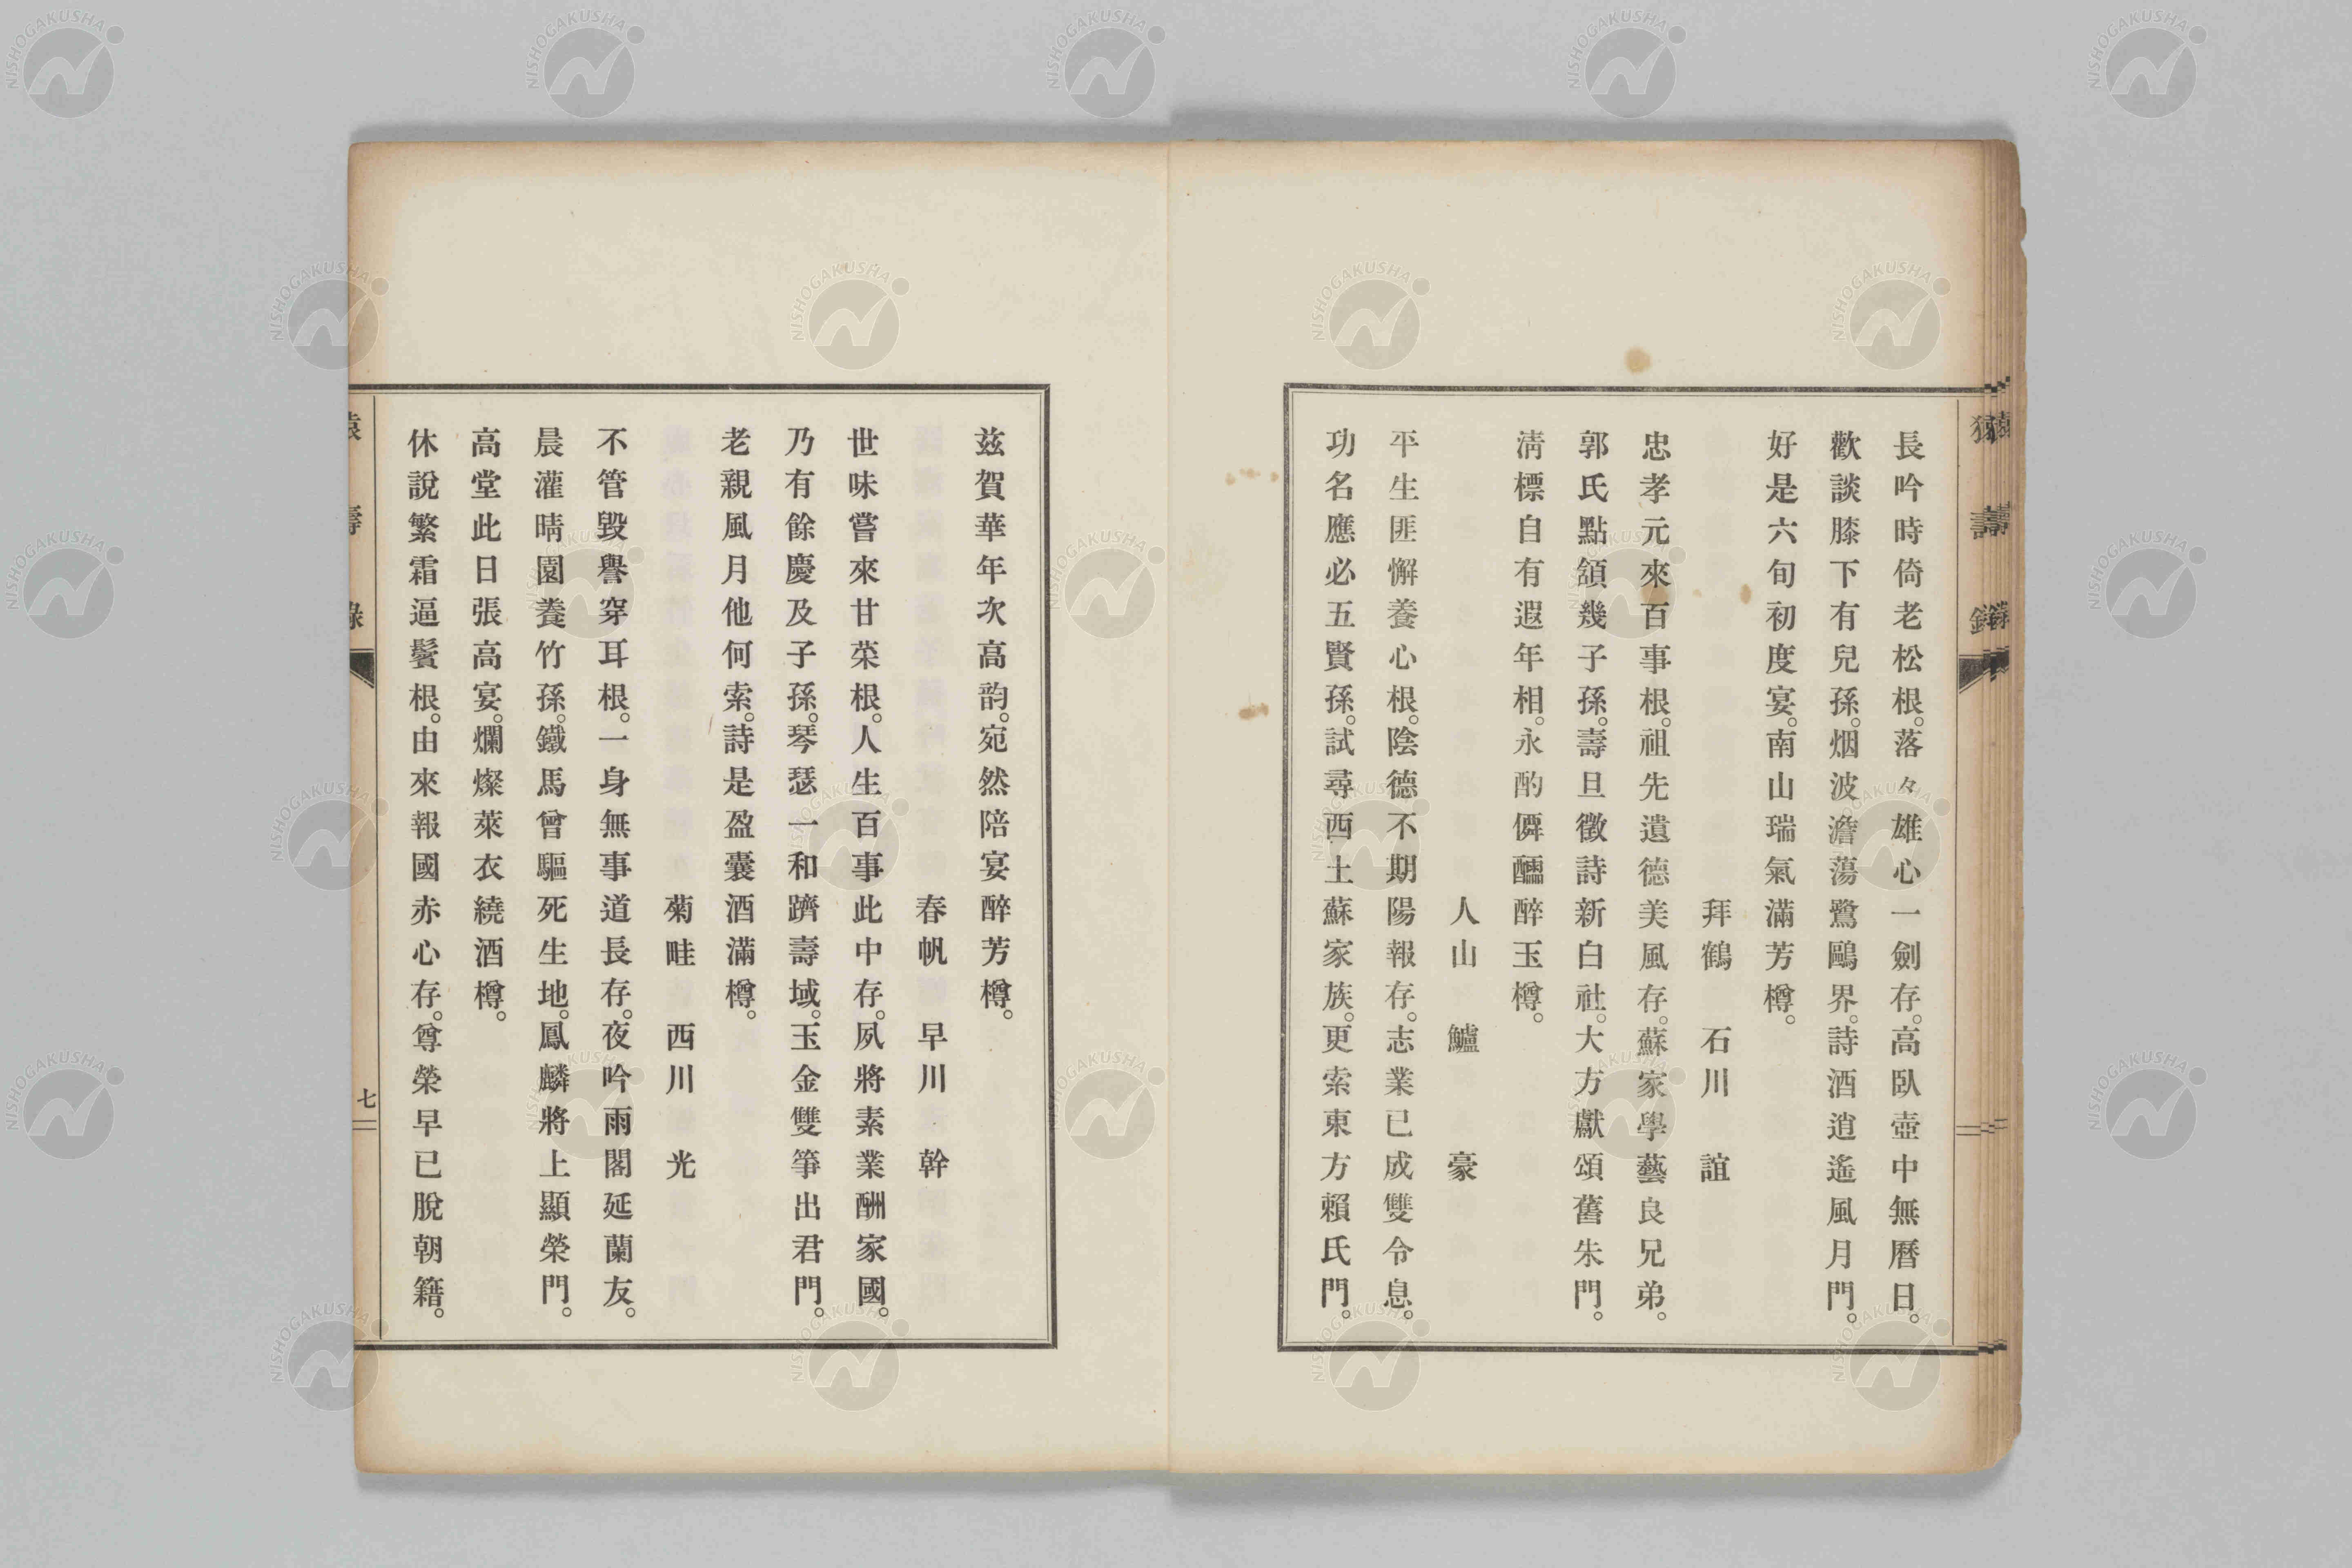 長吟時倚老松根。落々雄心一劍存。高臥壺中無曆日。
歡談膝下有兒孫。烟波澹蕩鷺鷗界。詩酒逍遙風月門。
好是六旬初度宴。南山瑞氣滿芳樽。
拜鶴 石川 誼
忠孝元來百事根。祖先遺德美風存。蘇家學藝良兄弟。
郭氏點頷幾子孫。壽旦徵詩新白社。大方獻頌舊朱門。
淸標自有遐年相。永酌僲醽醉玉樽。
人山 鱸 豪
平生匪懈養心根。陰德不期陽報存。志業已成雙令息。
功名應必五賢孫。試尋西土蘇家族。更索東方賴氏門。
玆賀華年次高韵。宛然陪宴醉芳樽。
春帆 早川 幹
世味嘗來甘菜根。人生百事此中存。夙將素業酬家國。
乃有餘慶及子孫。琴瑟一和躋壽域。玉金雙箏出君門。
老親風月他何索。詩是盈囊酒滿樽。
菊畦 西川 光
不管毀譽穿耳根。一身無事道長存。夜吟雨閣延蘭友。
晨灌晴園養竹孫。鐵馬曾驅死生地。鳳麟將上顯榮門。
高堂此日張高宴。爛燦萊衣繞酒樽。
休說繁霜逼鬢根。由來報國赤心存。尊榮早已脫朝籍。
壽
七
NISHOGAKUSHA